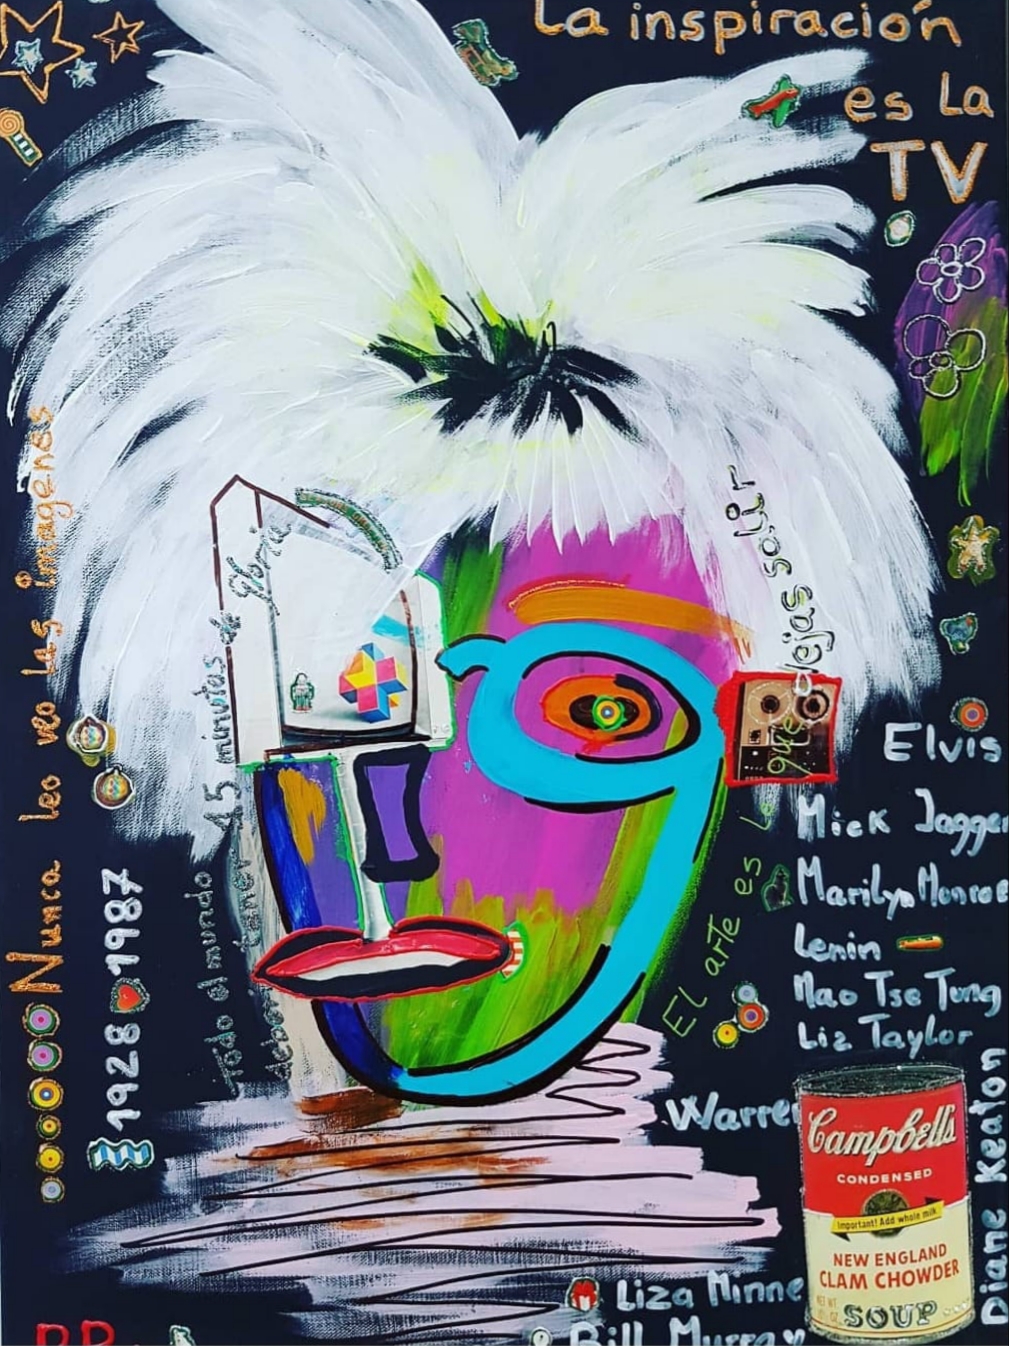 La inspiración
es La
TV
Nunca Leo veo Las imagenes
1928 1987
Todo el mundo
debe tener 15 minutos de gloria
El arte es lo que dejas salir
Elvis
Mick Jagger
Marilyn Monroe
Lenin
Mao Tse Tung
Liz Taylor
Warre
Diane Keaton
Campbell's
CONDENSED
Important! Add whole milk
NEW ENGLAND
CLAM CHOWDER
NET WT
SOUP
Liza Minne
Bill Murray